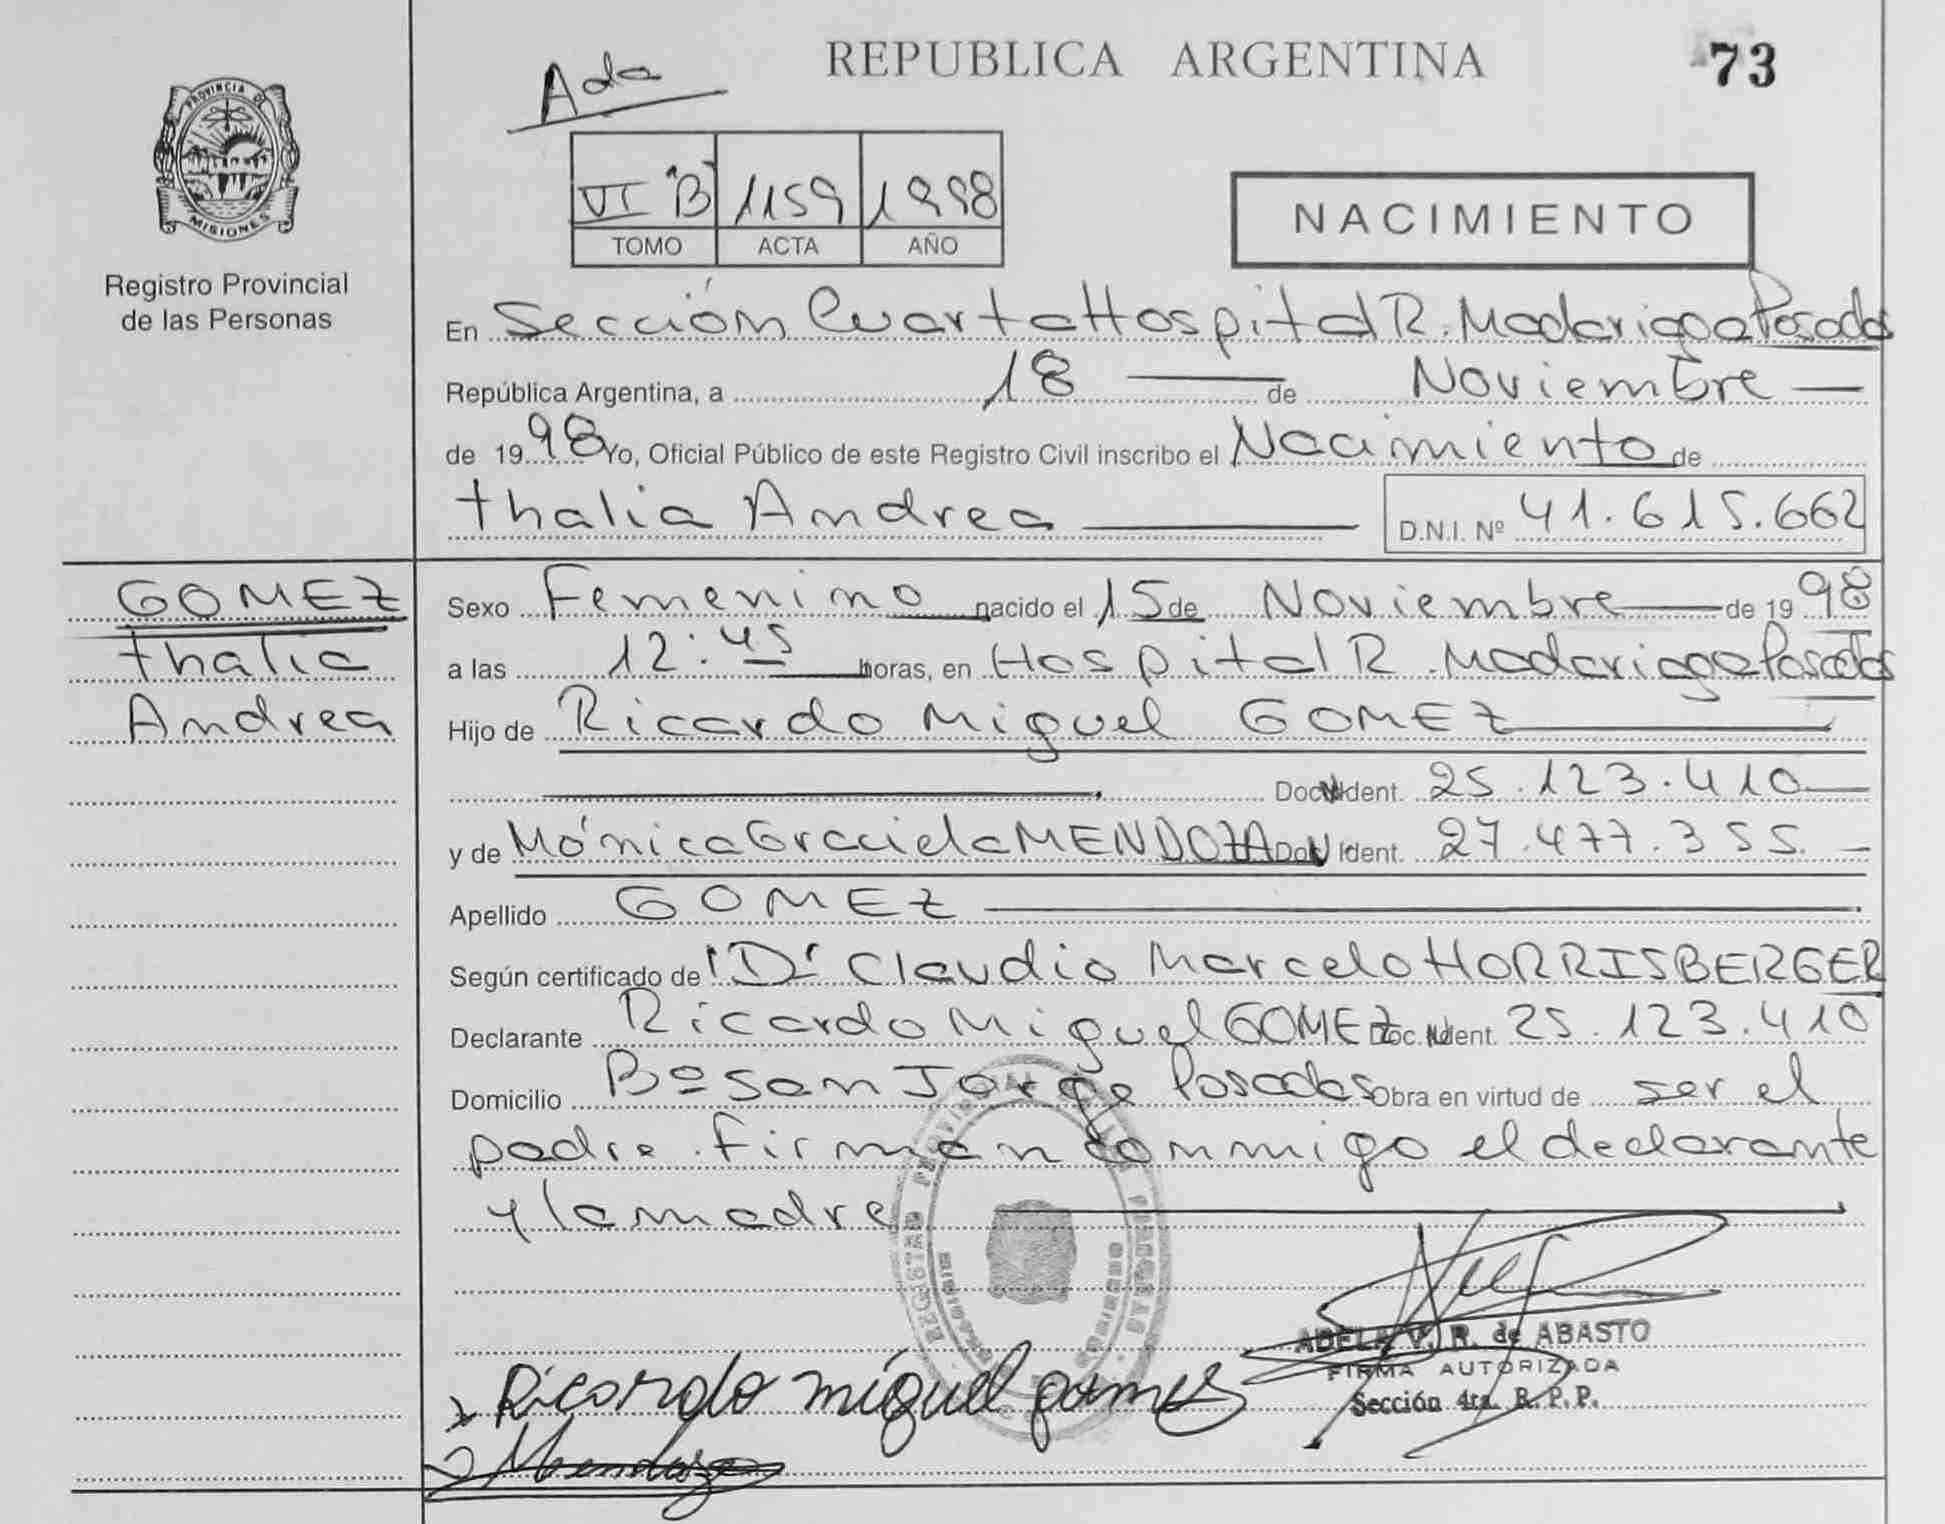 REPUBLICA ARGENTINA
73
Ada
PROVINCIA DE
MISIONES
Registro Provincial
de las Personas
VI "B" 1159 1998
TOMO ACTA AÑO
NACIMIENTO
En Sección Cuarta Hospital R. Madariaga Posadas
República Argentina, a 18 de Noviembre
de 1998 Yo, Oficial Público de este Registro Civil inscribo el Nacimiento de
thalia Andrea D.N.I. Nº 41.615.662
GOMEZ
thalia
Andrea
Sexo Femenino nacido el 15 de Noviembre de 1998
a las 12:45 horas, en Hospital R. Madariaga Posadas
Hijo de Ricardo Miguel GOMEZ
Doc. Ident. 25.123.410
y de Mónica Graciela MENDOZA Doc. Ident. 27.477.355.
Apellido GOMEZ
Según certificado de "Dr" Claudio Marcelo HORRISBERGER
Declarante Ricardo Miguel GOMEZ Doc. Ident. 25.123.410
Domicilio Bº San Jorge Posadas Obra en virtud de ser el
padre. firman conmigo el declarante
y la madre
REGISTRO PROVINCIAL DE LAS PERSONAS
ADELA V. R. de ABASTO
FIRMA AUTORIZADA
Sección 4ta. R. P. P.
Ricardo miguel gomes
Mendoza